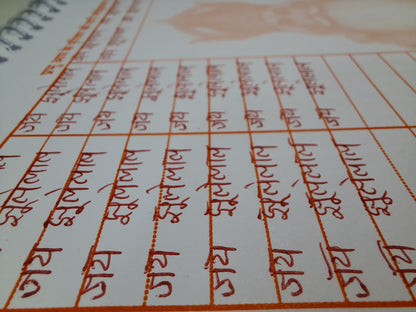 जय झूलेलाल जय झूलेलाल
जय झूलेलाल जय झूलेलाल
जय झूलेलाल जय झूलेलाल
जय झूलेलाल जय झूलेलाल
जय झूलेलाल जय झूलेलाल
जय झूलेलाल जय झूलेलाल
जय झूलेलाल जय झूलेलाल